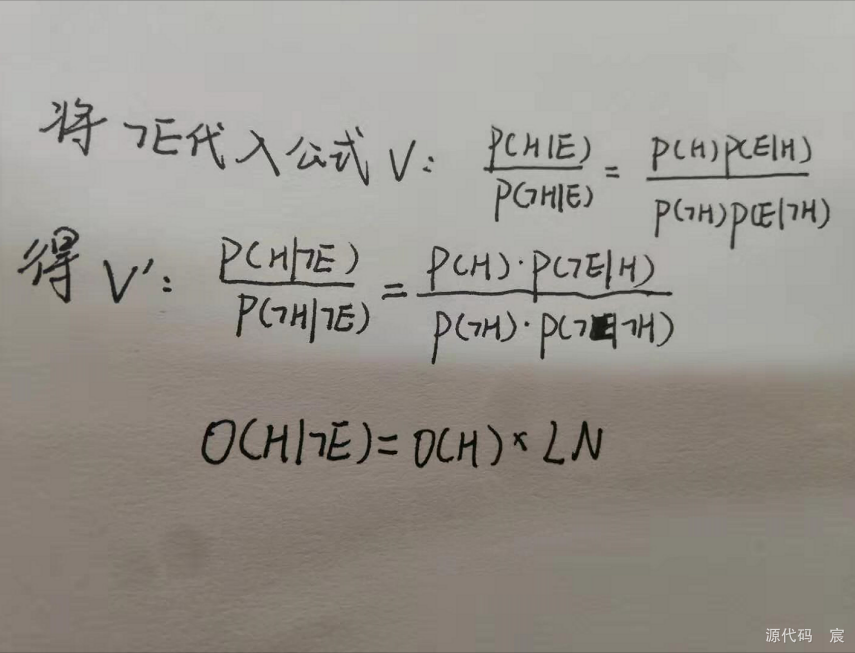 将 ¬E代入公式 V: P(H|E)/P(¬H|E) = P(H)P(E|H)/P(¬H)P(E|¬H)
得 V': P(H|¬E)/P(¬H|¬E) = P(H)·P(¬E|H)/P(¬H)·P(¬E|¬H)
O(H|¬E)=O(H)×LN
源代码 宸